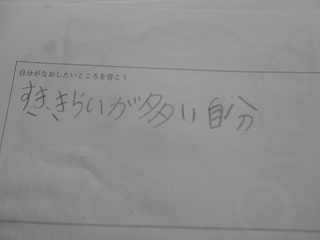 自分がなおしたいところを書こう
すき、きらいが多い自分